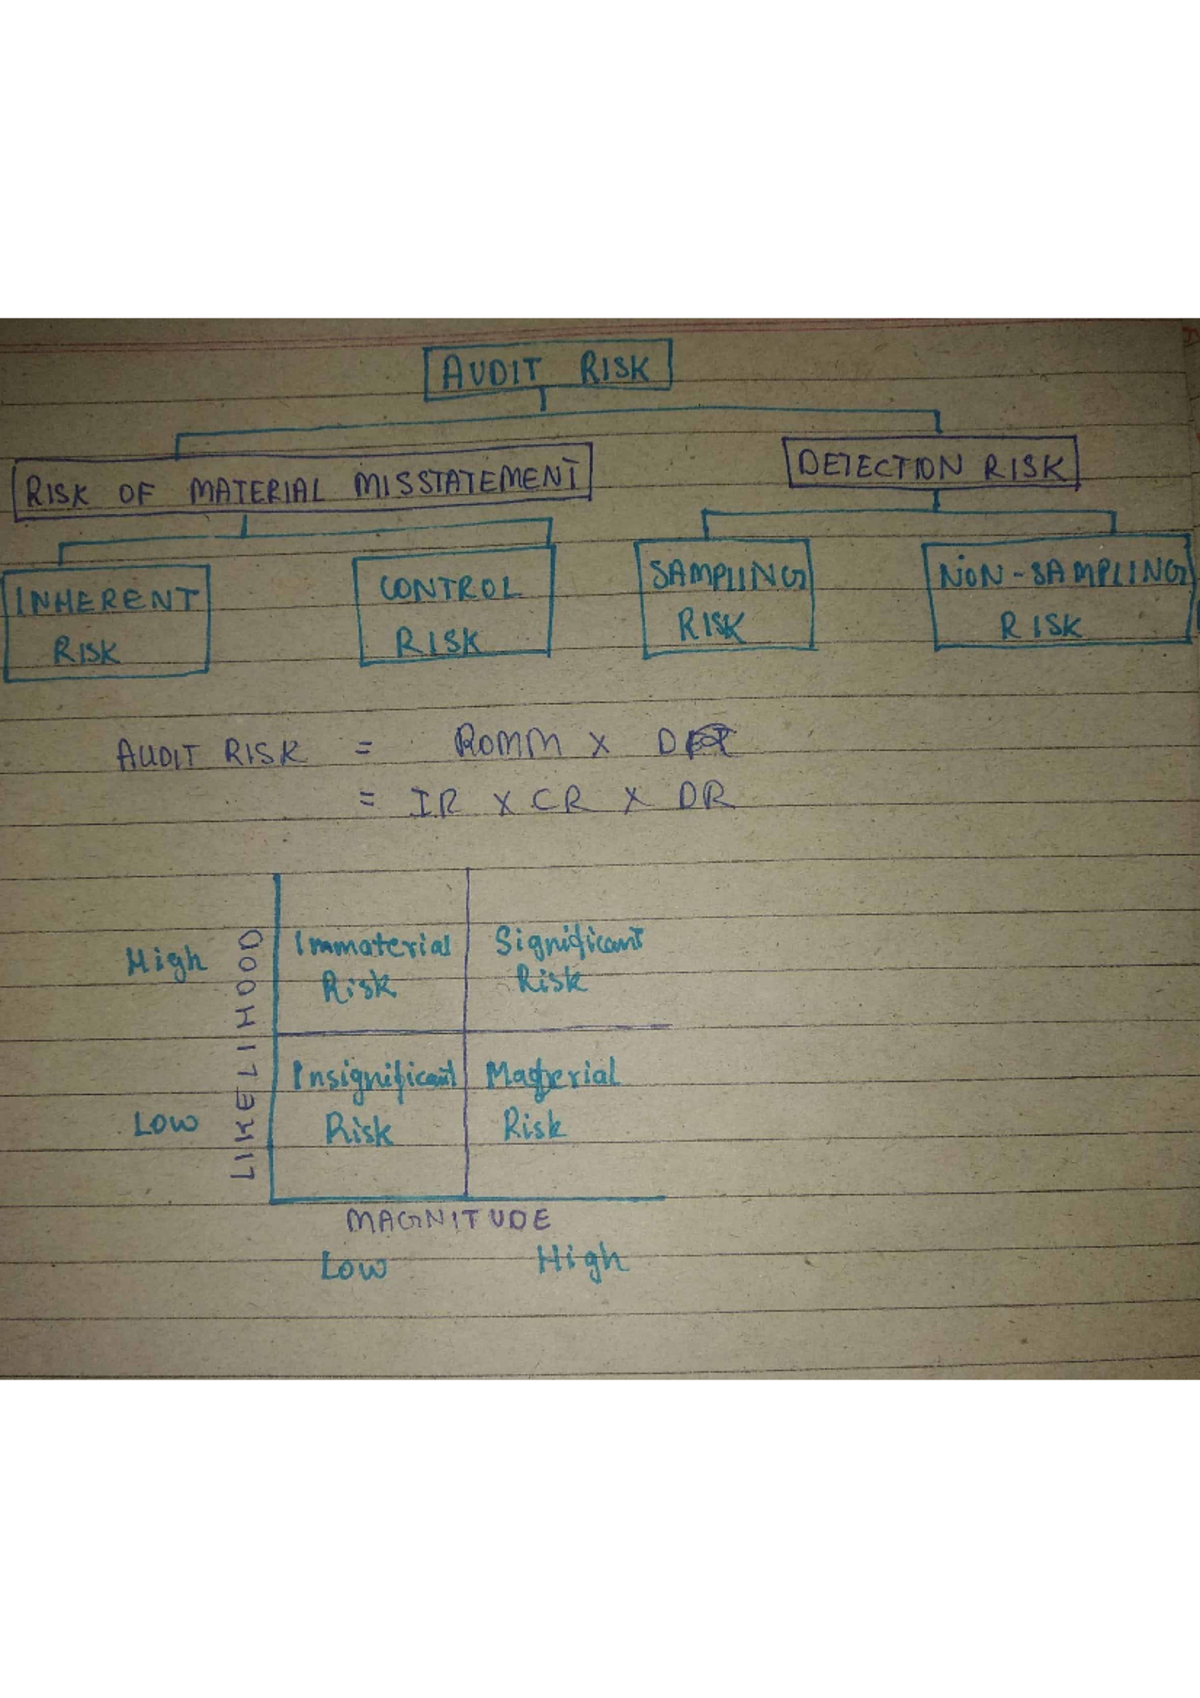 AUDIT RISK
RISK OF MATERIAL MISSTATEMENT
DETECTION RISK
INHERENT
RISK
CONTROL
RISK
SAMPLING
RISK
NON-SAMPLING
RISK
AUDIT RISK = ROMM X
= IR X CR X DR
High
LIKELIHOOD
Immaterial
Risk
Significant
Risk
Low
Insignificant
Risk
Material
Risk
MAGNITUDE
Low High